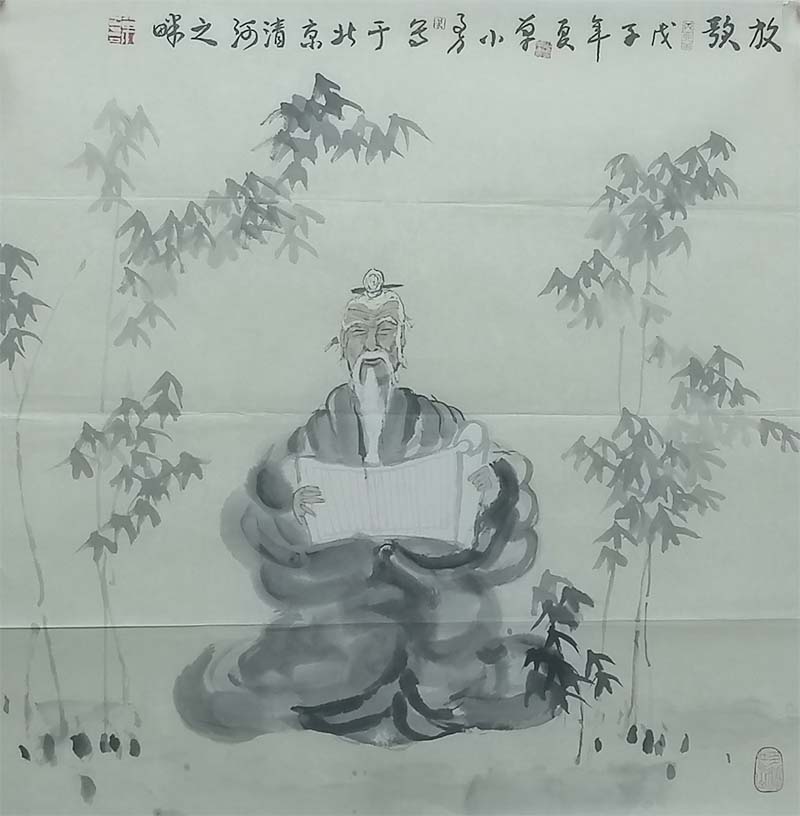 放歌 戊子年夏草小勇写于北京清河之畔